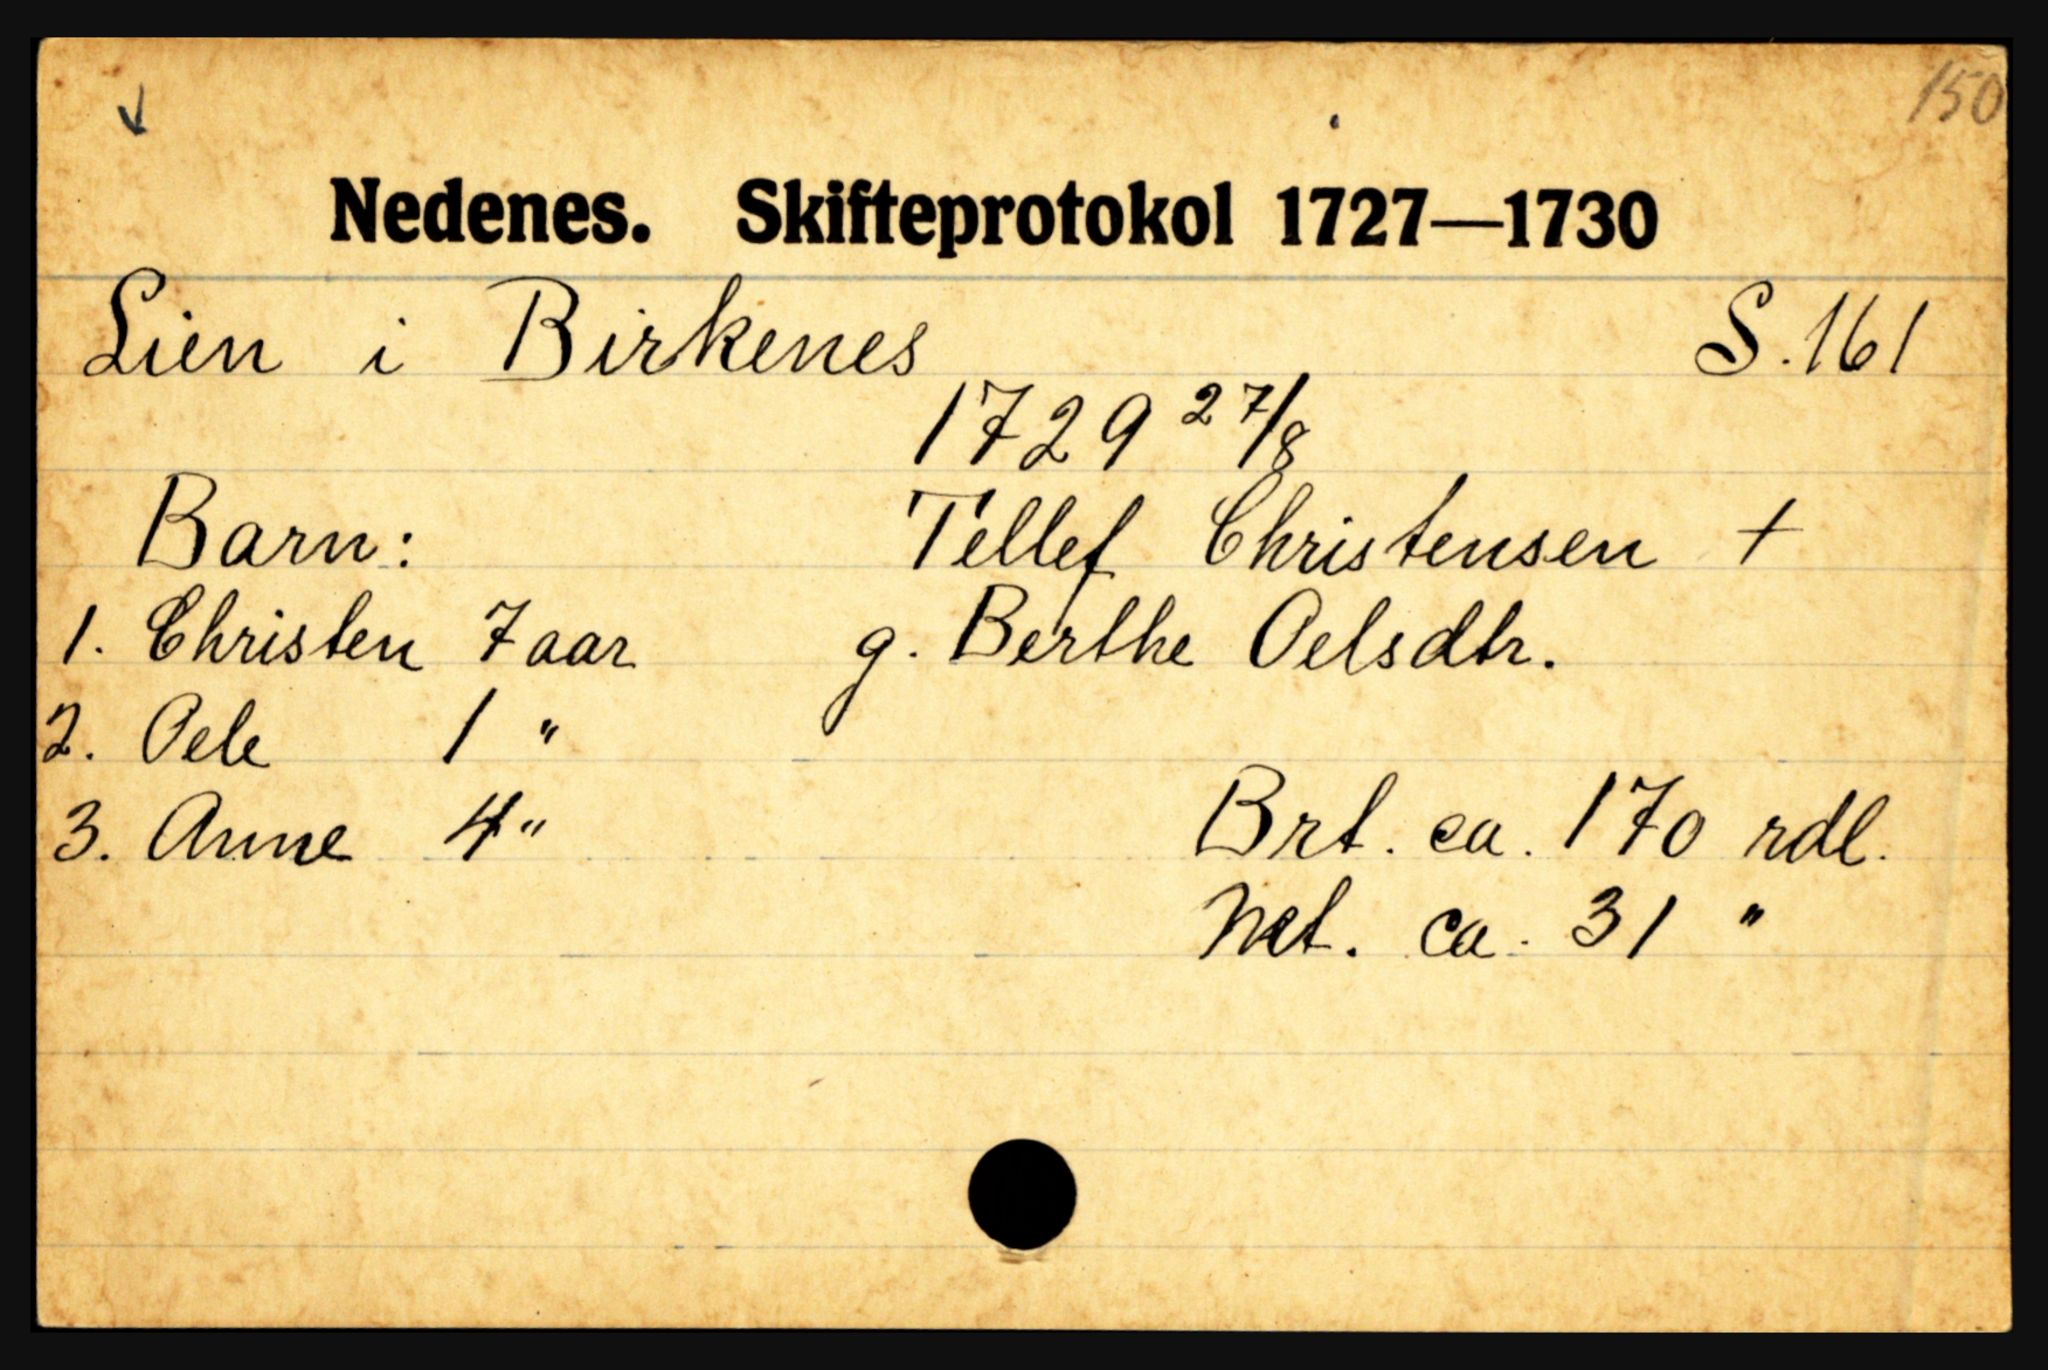 150
Nedenes. Skifteprotokol 1727—1730
Lien i Birkenes S. 161
1729 27/8
Barn: Tellef Christensen +
1. Christen 7 aar g. Berthe Oelsdtr.
2. Oele 1 "
3. Anne 4 " Brt. ca. 170 rdl.
Net. ca. 31 "